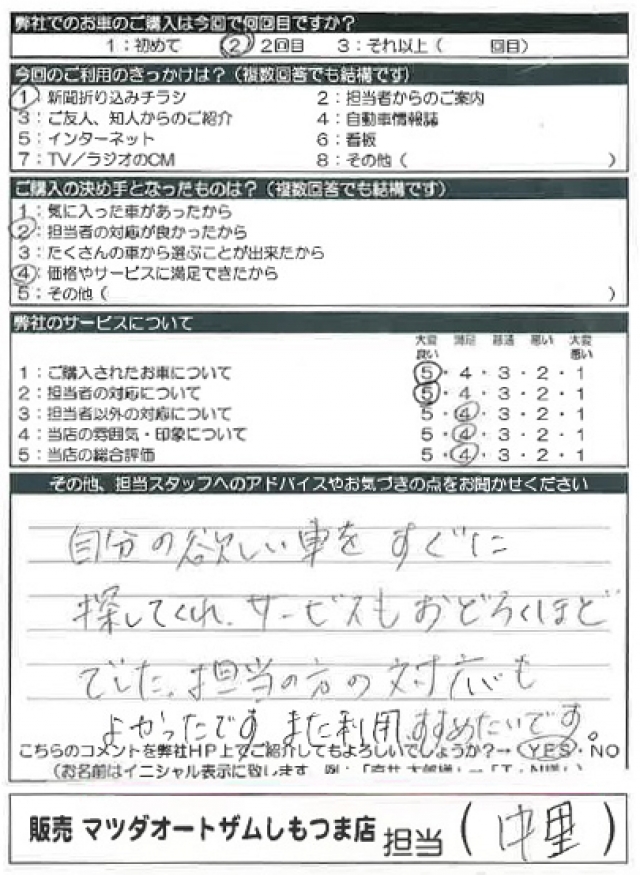 弊社でのお車のご購入は今回で何回目ですか？
1：初めて　2：2回目　3：それ以上（　　回目）
今回のご利用のきっかけは？（複数回答でも結構です）
1：新聞折り込みチラシ　2：担当者からのご案内
3：ご友人、知人からのご紹介　4：自動車情報誌
5：インターネット　6：看板
7：TV／ラジオのCM　8：その他（　　）
ご購入の決め手となったものは？（複数回答でも結構です）
1：気に入った車があったから
2：担当者の対応が良かったから
3：たくさんの車から選ぶことが出来たから
4：価格やサービスに満足できたから
5：その他（　　）
弊社のサービスについて
大変良い　満足　普通　悪い　大変悪い
1：ご購入されたお車について　5・4・3・2・1
2：担当者の対応について　5・4・3・2・1
3：担当者以外の対応について　5・4・3・2・1
4：当店の雰囲気・印象について　5・4・3・2・1
5：当店の総合評価　5・4・3・2・1
その他、担当スタッフへのアドバイスやお気づきの点をお聞かせください
自分の欲しい車をすぐに
探してくれ、サービスもおどろくほど
でした。担当の方の対応も
よかったです。また利用、すすめたいです。
こちらのコメントを弊社HP上でご紹介してもよろしいでしょうか？→ YES・NO
（お名前はイニシャル表示に致します
販売 マツダオートザムしもつま店 担当（中里）